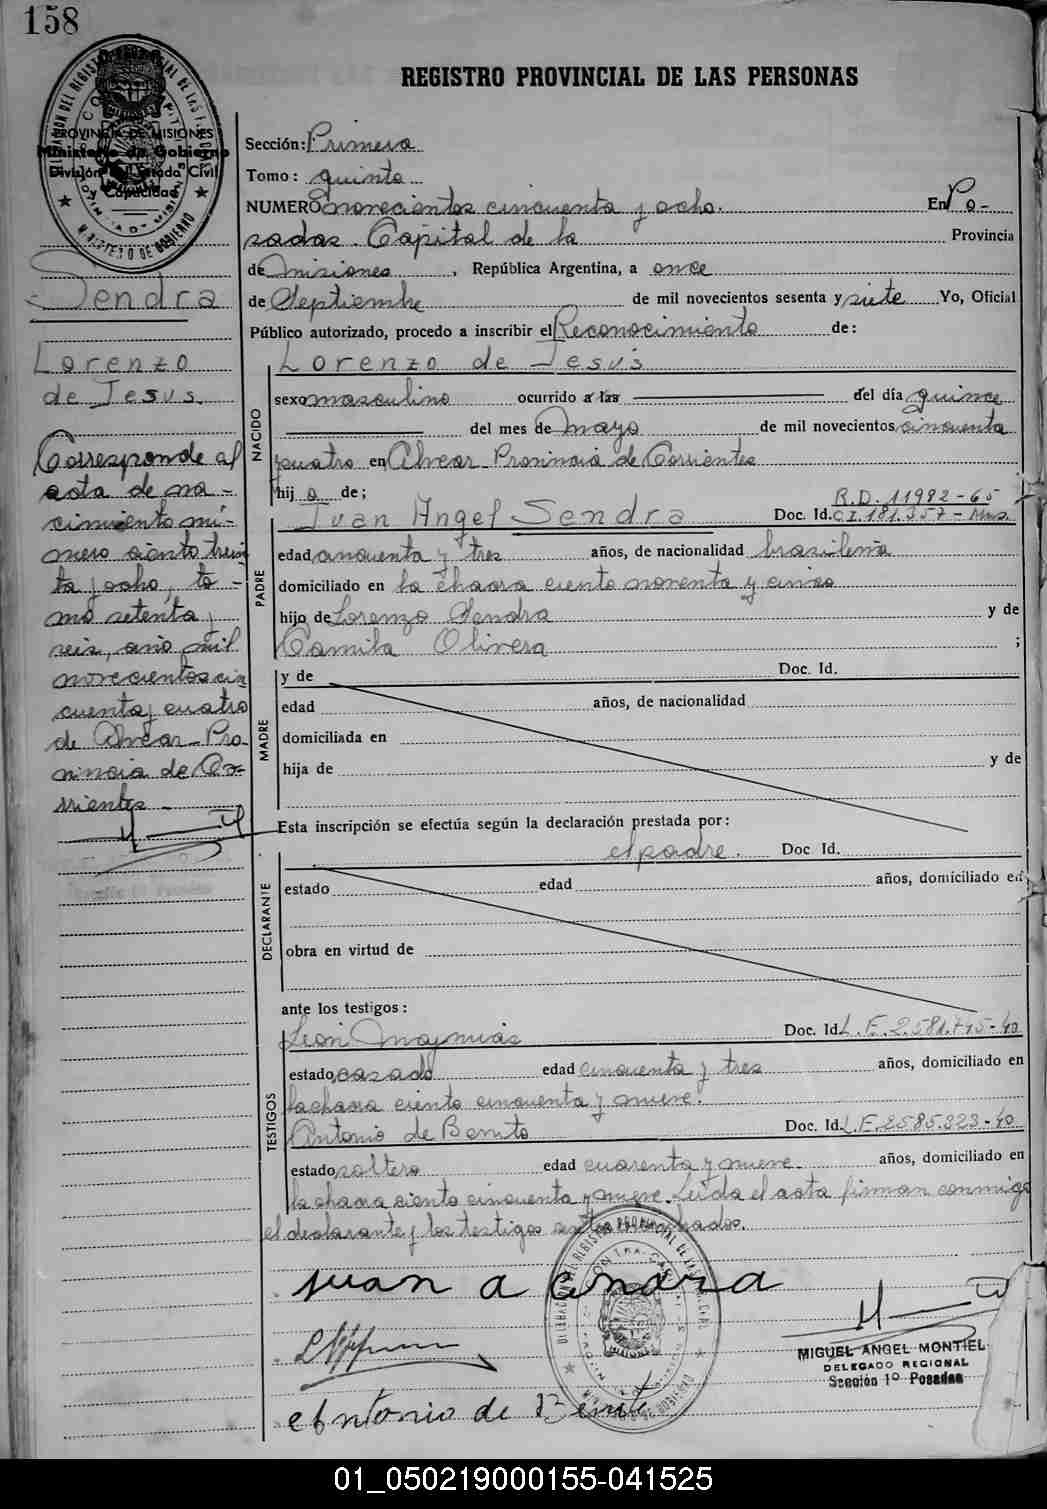 158
REGISTRO PROVINCIAL DE LAS PERSONAS
PROVINCIA DE MISIONES
Ministerio de Gobierno
División del Estado Civil
y Capacidad
Sección: Primera
Tomo: quinto
NUMERO novecientos cincuenta y ocho. En Po-
sadas. Capital de la Provincia
de Misiones, República Argentina, a once
de Septiembre de mil novecientos sesenta y siete Yo, Oficial
Público autorizado, procedo a inscribir el Reconocimiento de:
Sendra
Lorenzo
de Jesus.
Corresponde al
acta de na-
cimiento nú-
mero ciento trein
ta y ocho, to-
mo setenta y
seis, año mil
novecientos cin
cuenta y cuatro
de Alvear-Pro-
vincia de Co-
rrientes-
NACIDO
Lorenzo de Jesús
sexo masculino ocurrido a las del día quince
del mes de Mayo de mil novecientos cincuenta
y cuatro en Alvear Provincia de Corrientes
hijo de;
PADRE
R.D. 11982-65
Juan Angel Sendra Doc. Id. C.I. 181.357-Mns.
edad cincuenta y tres años, de nacionalidad brasileña
domiciliado en la chacra ciento noventa y cinco
hijo de Lorenzo Sendra y de
Camila Olivera ;
MADRE
y de Doc. Id.
edad años, de nacionalidad
domiciliada en
hija de y de
Esta inscripción se efectúa según la declaración prestada por:
el padre. Doc Id.
DECLARANTE
estado edad años, domiciliado en
obra en virtud de
ante los testigos:
TESTIGOS
León Doc. Id. L.E. 2.581.745-40
estado casado edad cincuenta y tres años, domiciliado en
la chacra ciento cincuenta y nueve.
Antonio de Benito Doc. Id. L.E. 2585.223-40
estado soltero edad cuarenta y nueve. años, domiciliado en
la chacra ciento cincuenta y nueve. Leída el acta firman conmigo
el declarante y los testigos
Juan A Cendra
Antonio de Benito
MIGUEL ANGEL MONTIEL
DELEGADO REGIONAL
Sección 1º Posadas
01_050219000155-041525